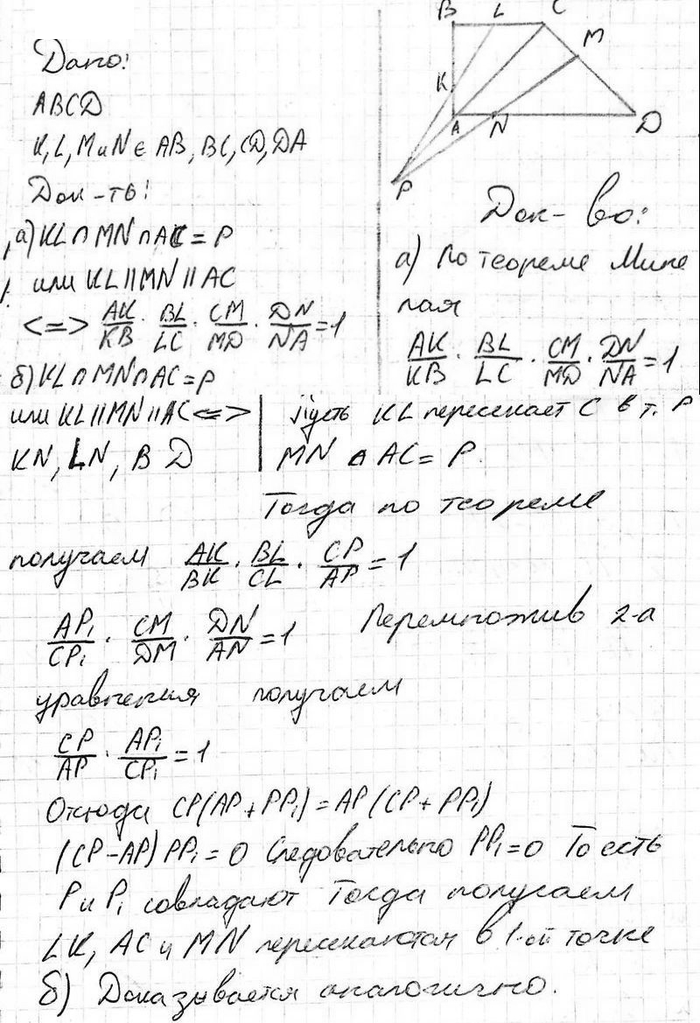 Дано:
ABCD
K, L, M и N ∈ AB, BC, CD, DA
Док-ть:
а) KL ∩ MN ∩ AC = P
или KL || MN || AC
<=> AK/KB · BL/LC · CM/MD · DN/NA = 1
б) KL ∩ MN ∩ AC = P
или KL || MN || AC <=>
KN, LN, B D
B L C
M
K
A N D
P
Док-во:
а) По теореме Мине
лая
AK/KB · BL/LC · CM/MD · DN/NA = 1
Пусть KL пересекает C в т. P
MN ∩ AC = P.
Тогда по теореме
получаем AK/BK · BL/CL · CP/AP = 1
AP₁/CP₁ · CM/DM · DN/AN = 1 Перемножив 2-а
уравнения получаем
CP/AP · AP₁/CP₁ = 1
Откюда CP(AP + PP₁) = AP(CP + PP₁)
(CP – AP) PP₁ = 0 Следовательно PP₁ = 0 То есть
P и P₁ совпадают Тогда получаем
LK, AC и MN пересекаются в 1-ой точке
б) Доказывается аналогично.